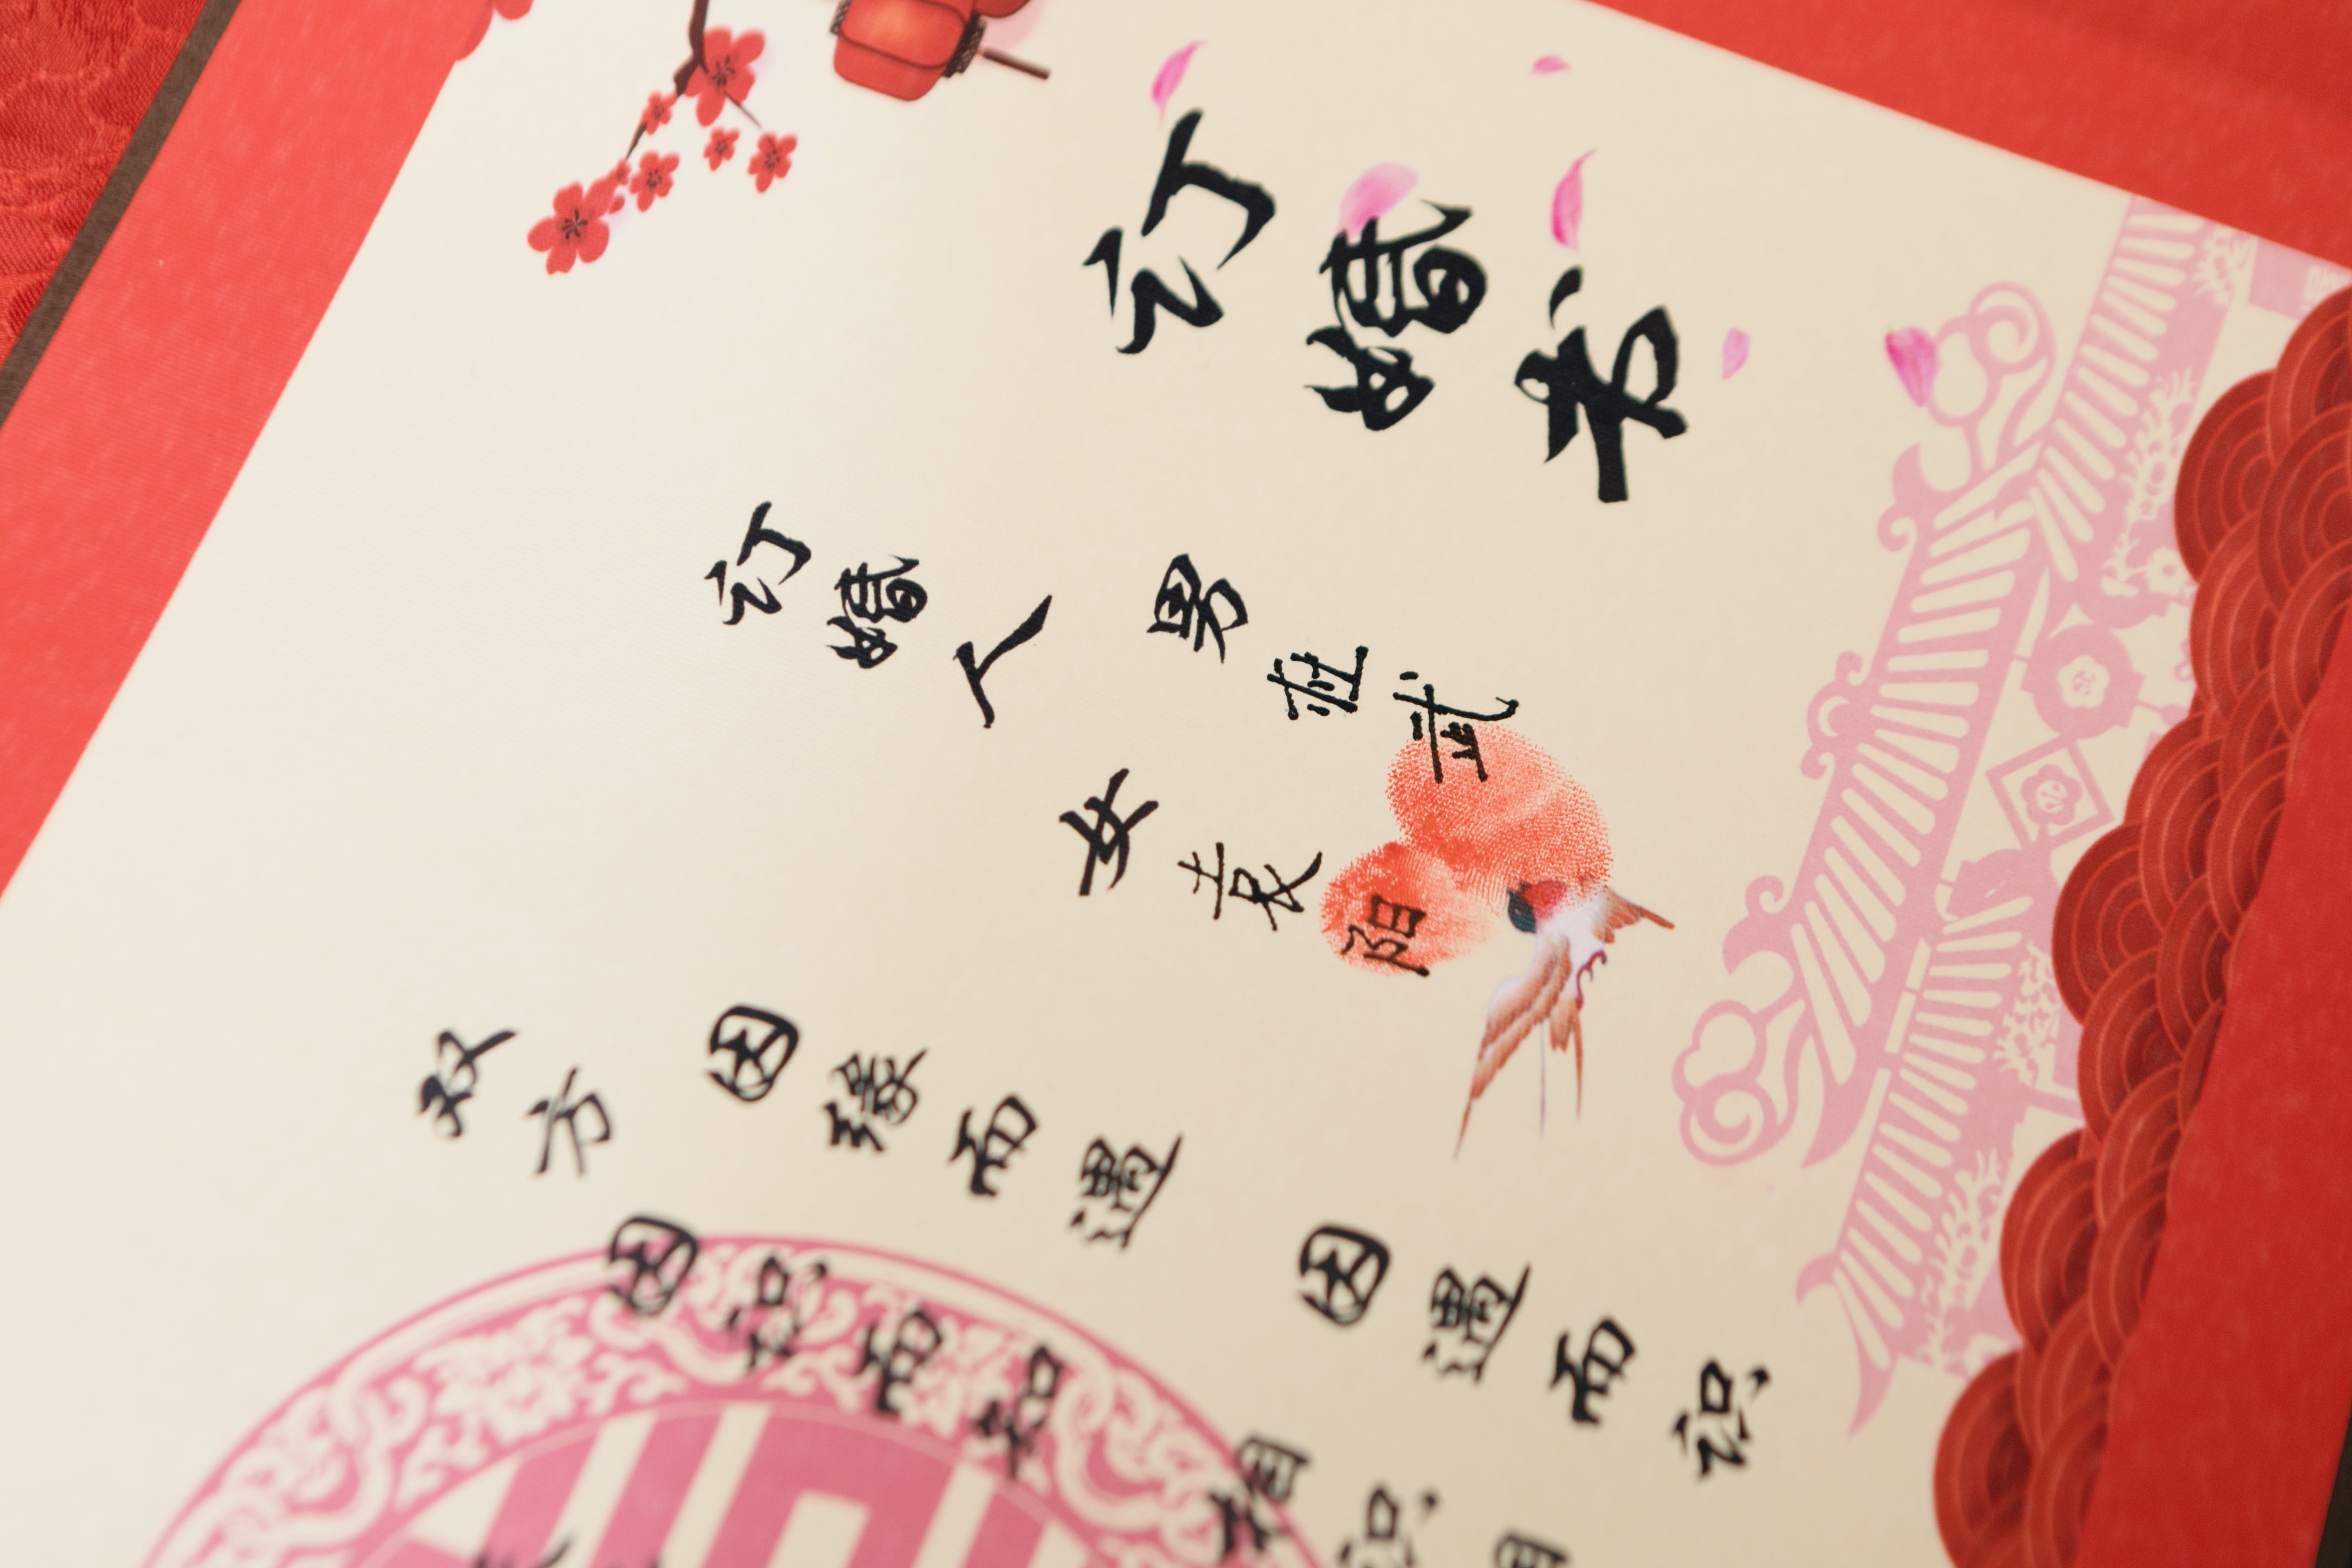 订婚书
订婚人 男 武
女 袁阳
双方 因缘而遇 因遇而识
因识而知 相识